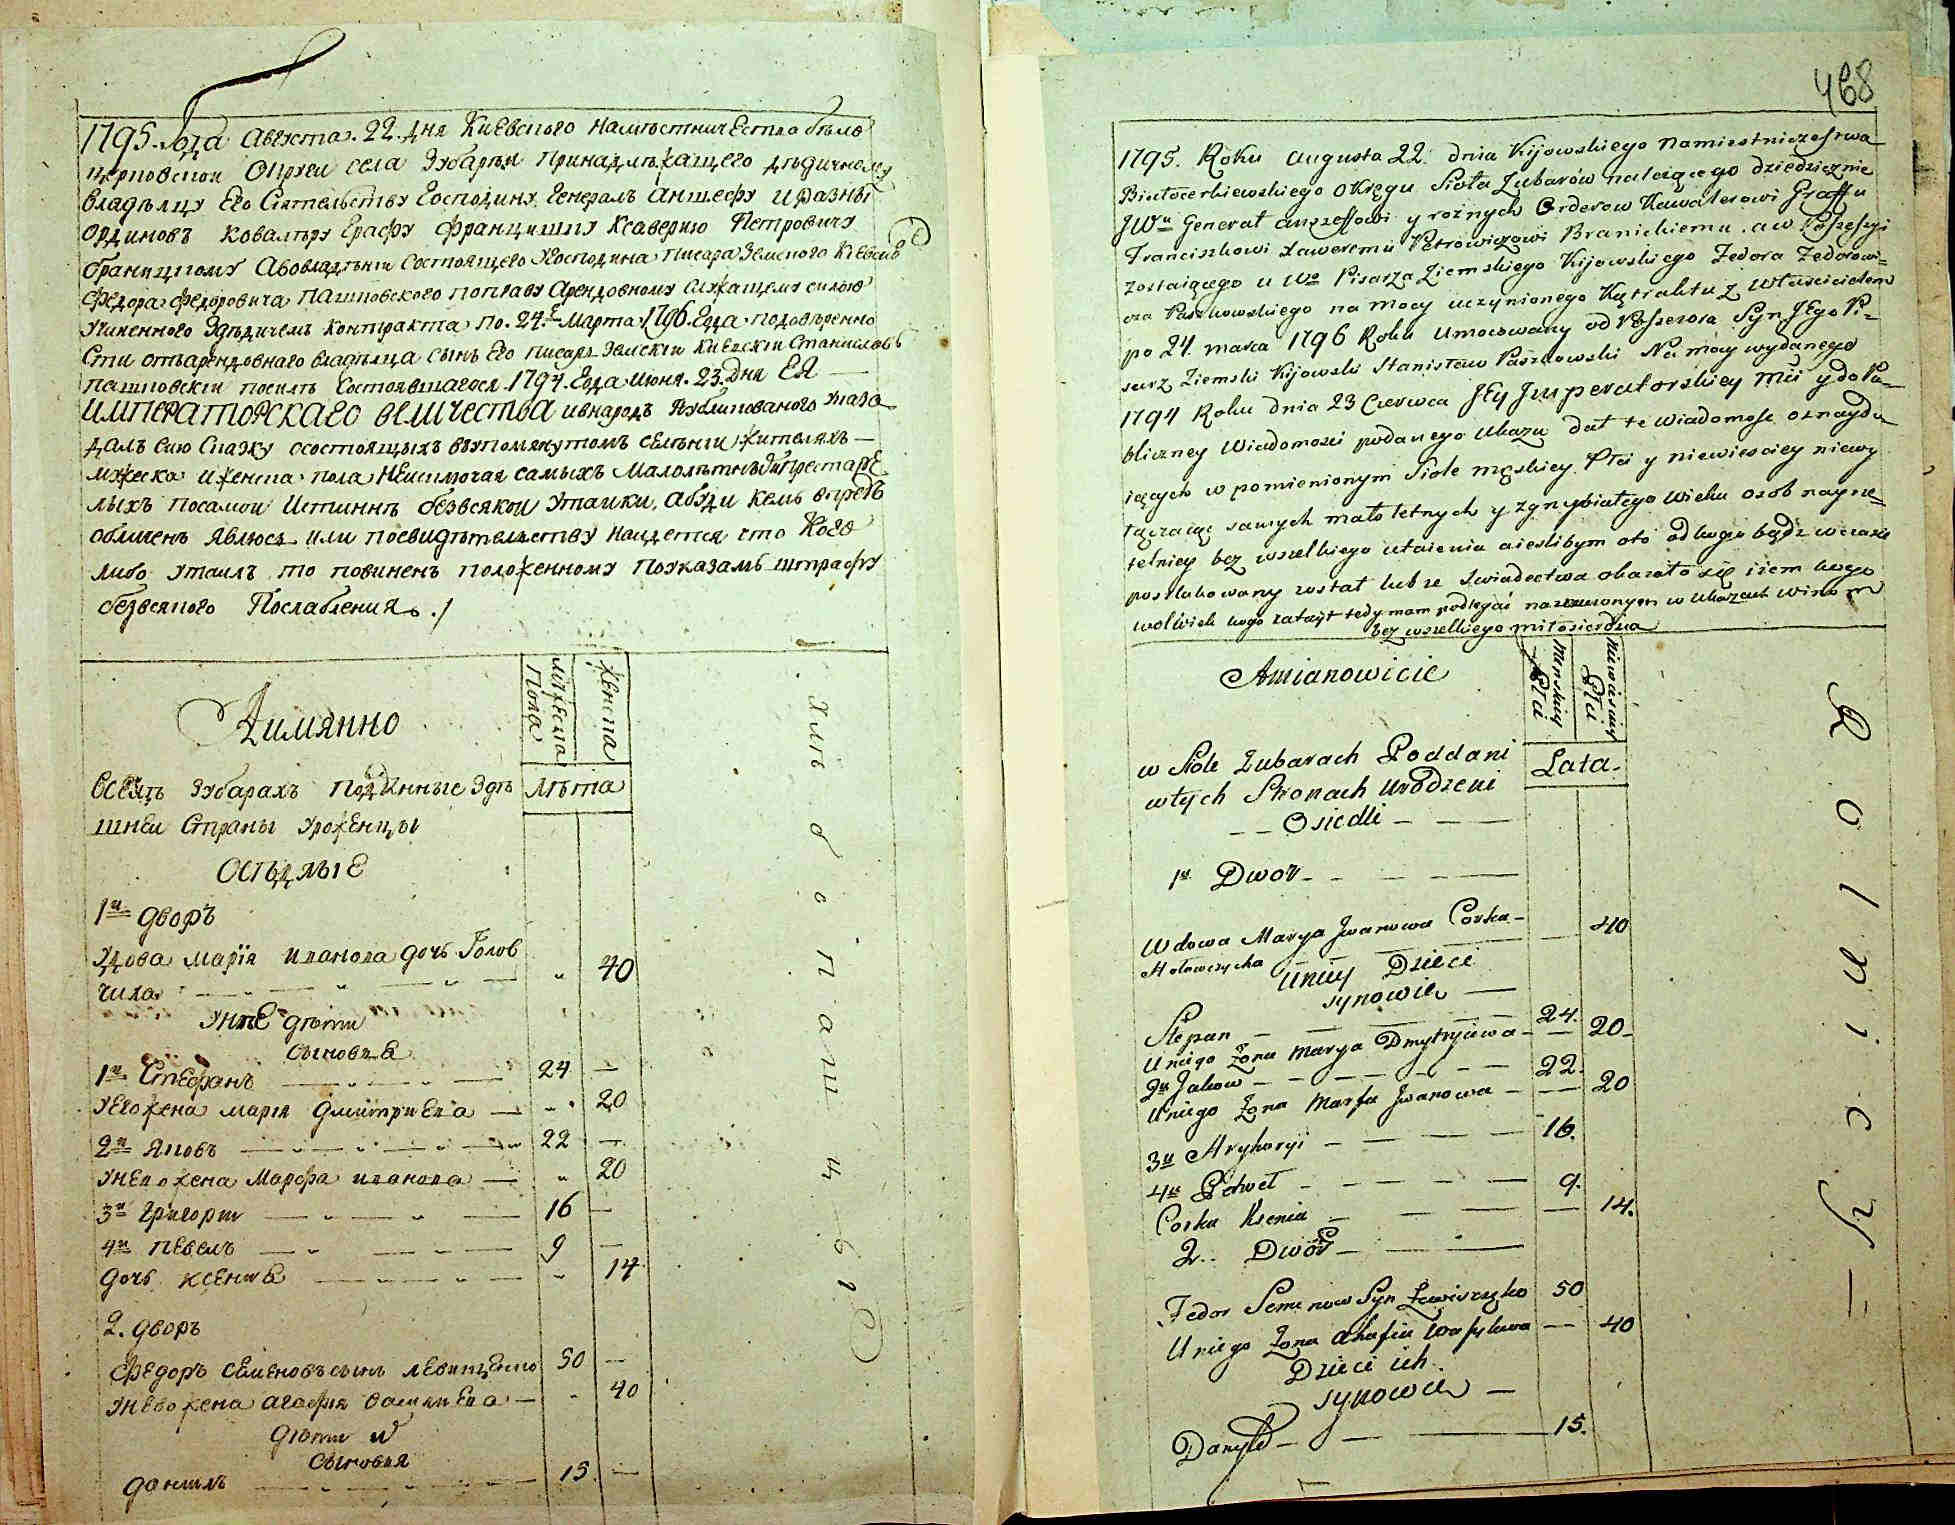 1795. года Августа. 22. дня Киевского наместничества бело
церковской округи села Зубарьи принадлежащего дедичному
владелцу Его Сиятельству Господину Генералъ Аншефу и разных
ординовъ ковалеру Графу Францишку Ксаверию Петровичу
Браницкому Авовладении Состоящего Угосподина писара Земского Киевске
Федора Федоровича Пашковского поправу Арендовному служащему силою
учиненного Здедичемъ контракта по. 24.е Марта 1796. Года подоверенно
сти отъарендовнаго владелца сынъ его писаръ Земскии Киевскии Станиславъ
Пашковскии посилѣ Состоявшагося. 1794. Года июня. 23. Дня ЕЯ
ИМПЕРАТОРСКАГО ВЕЛИЧЕСТВА ивнародъ Публикованого указа
далъ сию Сказку осостоящыхъ въупомянутомъ селении жителяхъ
мужеска и женска пола Неисключая самыхъ Малолетныхъ ипрестаре
лыхъ посамои Истиннѣ безвсякои утаики. Абуди кемъ впредь
обличенъ Явлюсь или посвидетельству Наидется что Кого
либо утаилъ то повиненъ положенному поуказамъ штрафу
безвсякого Послабления./
Аимянно
мужеска Пола
женска
лѣта
Вселѣ Зубарахъ Подданные Здѣ
шнеи Страны Уроженцы
ОСѢДЛЫЕ
1й дворъ
Удова Марія иванова дочь Голов
чиха 40
Унее дѣти
Сыновья
1й Стефанъ 24
Уегожена Марія Дмитриева 20
2й Яковъ 22
Унегожена Марфа иванова 20
3й Григори 16
4й Павелъ 9
дочь Ксения 14
2. дворъ
Федоръ Семеновъ сынъ Левищенко 50
Унегожена Агафия Василиева 40
Дѣти и
Сыновья
данилъ 15
Хлѣбопашцы
468
1795. Roku Augusta 22. dnia Kijowskiego Namiestniczestwa
Białocerkiewskiego Okręgu Sioła Zubarów należącego dziedzicznie
JWu Generał anszeffowi y rożnych Orderow Kawalerowi Graffu
Franciszkowi Xaweremu Petrowiczowi Branickiemu. a w Possesyi
zostaiącego u Wo Pisarza Ziemskiego Kijowskiego Fedora Fedorowi=
cza Paszkowskiego na mocy uczynionego Kątraktu z Właścicielem
po 24. marca 1796 Roku Umocowany od Possesora Syn JEgo Pi=
sarz Ziemski Kijowski Stanisław Paszkowski Na mocy wydanego
1794 Roku dnia 23 Czerwca JEy Jmperatorskiey Mci y do Pu=
bliczney Wiadomości podanego Ukazu dał tę Wiadomość o znaydu
iących w pomienionym Siole męskiey Płci y niewiesciey niewy
łączaiąc samych małoletnych y zgrzybiałego wieku osob nayrze=
telniey bez wszelkiego utaienia aiesłibym oto od kogo bądź w czasie
poszlakowany został lub ze świadectwa okazało się iżem kogo
wolwiek kogo zataił tedy mam podlegać naznaczonym w Ukazach winom
bez wszelkiego miłosierdzia
Amianowicie
Menskiey Płci
Niewiesciey Płci
Lata.
w Siole Zubarach Poddani
w tych Stronach Urodzeni
Osiedli
1y Dwor
Wdowa Marya Jwanowa Corka 40
Hołowczycha
Uniey Dzieci
synowie
Stepan 24.
Uniego Żona Marya Dmytryiewa 20
2y Jakow 22.
Uniego Żona Marfa Jwanowa 20
3y Hryhoryi 16.
4y Pawеł 9.
Corka Ksenia 14.
2. Dwor
Fedor Semenow Syn Lewiszczęko 50
Uniego Żona Ahafia Wasylowa 40
Dzieci ich.
synowie
Danyło 15.
Rolnicy